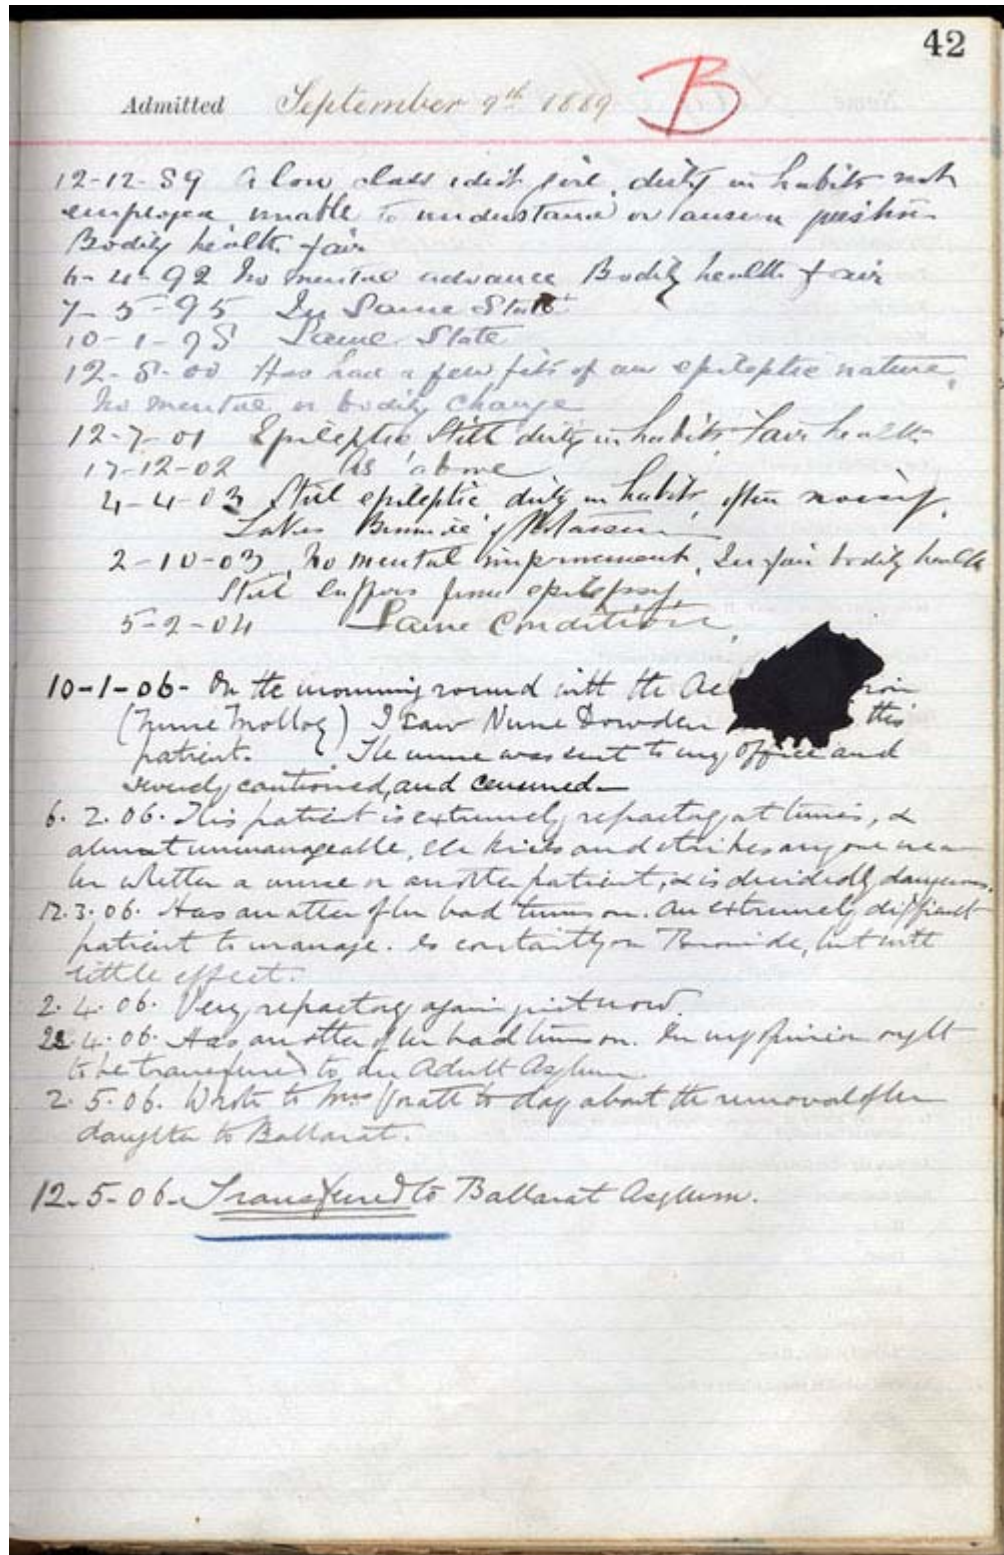 42
Admitted September 9th 1889 B
12-12-89 A low class idiot girl, dirty in habits not
employed unable to understand or answer
Bodily health fair
6-4-92 No mental advance Bodily health fair
7-5-95 In Same State
10-1-98 Same State
12-8-00 Has had a few fits of an epileptic nature,
No mental or bodily change
12-7-01 Epileptic Still dirty in habits Fair health
17-12-02 As above
4-4-03 Still epileptic dirty in habits, often noisy,
Takes Bromide of Potassium
2-10-03 No mental improvement, In fair bodily health
Still suffers from epilepsy
5-2-04 Same Condition,
10-1-06- On the morning round with the Ac
(Nurse Molloy) I saw Nurse Dowden this
patient. The nurse was sent to my office and
severely cautioned, and censured-
6.2.06. This patient is extremely refractory at times, &
almost unmanageable, she kicks and strikes anyone near
her whether a nurse or another patient, & is decidedly dangerous.
12.3.06. Has another of her bad turns on. An extremely difficult
patient to manage. Is constantly on Bromide, but with
little effect.
2.4.06. Very refractory again just now.
22.4.06. Has another of her bad turns on. In my opinion ought
to be transferred to an Adult Asylum.
2.5.06. Wrote to Mrs to day about the removal of her
daughter to Ballarat.
12-5-06- Transferred to Ballarat Asylum.